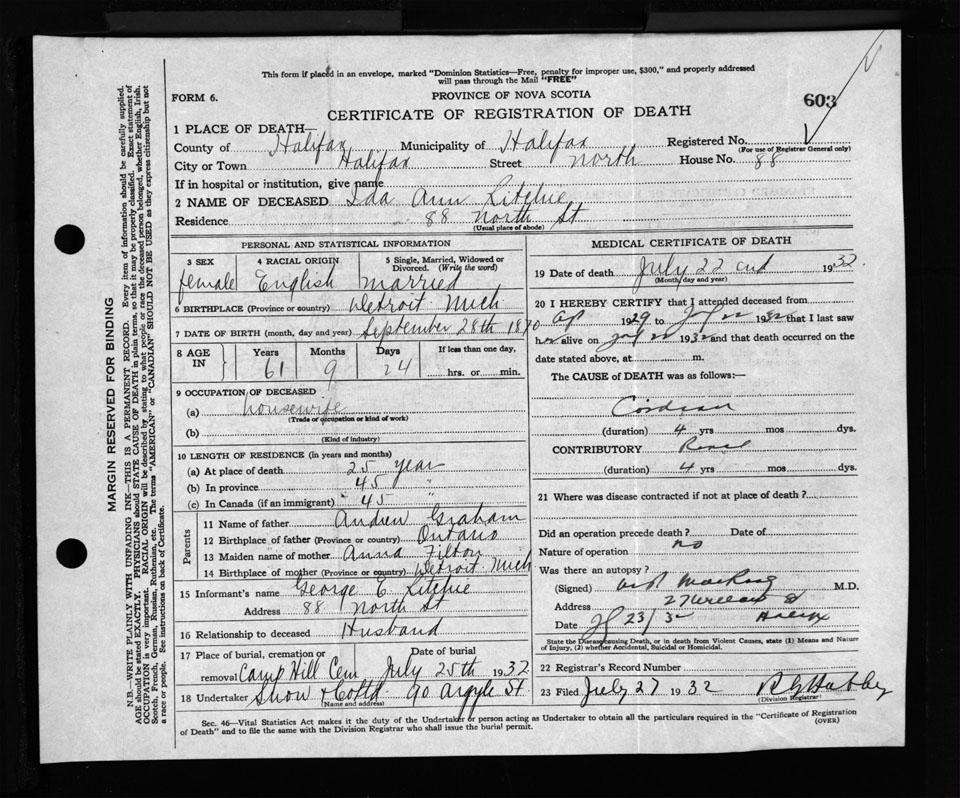 This form if placed in an envelope, marked "Dominion Statistics—Free, penalty for improper use, $300," and properly addressed
will pass through the Mail "FREE"
FORM 6.
PROVINCE OF NOVA SCOTIA
603
CERTIFICATE OF REGISTRATION OF DEATH
1 PLACE OF DEATH—
County of Halifax Municipality of Halifax Registered No.
(For use of Registrar General only)
City or Town Halifax Street North House No. 88
If in hospital or institution, give name
2 NAME OF DECEASED Ida Ann Ritchie
Residence 88 North St
(Usual place of abode)
PERSONAL AND STATISTICAL INFORMATION
3 SEX 4 RACIAL ORIGIN 5 Single, Married, Widowed or Divorced. (Write the word)
female English married
6 BIRTHPLACE (Province or country) Detroit Mich
7 DATE OF BIRTH (month, day and year) September 28th 1870
8 AGE IN Years Months Days If less than one day,
61 9 24 hrs. or min.
9 OCCUPATION OF DECEASED
(a) housewife
(Trade or occupation or kind of work)
(b)
(Kind of industry)
10 LENGTH OF RESIDENCE (in years and months)
(a) At place of death 25 year
(b) In province 45 "
(c) In Canada (if an immigrant) " 45 "
Parents
11 Name of father Andrew Graham
12 Birthplace of father (Province or country) Ontario
13 Maiden name of mother Anna Filton
14 Birthplace of mother (Province or country) Detroit Mich
15 Informant's name George E Ritchie
Address 88 North St
16 Relationship to deceased Husband
17 Place of burial, cremation or removal Date of burial
Camp Hill Cem July 25th 1932
18 Undertaker Snow & Co Ltd 90 Argyle St.
(Name and address)
MEDICAL CERTIFICATE OF DEATH
19 Date of death July 22 nd 1932
(Month, day and year)
20 I HEREBY CERTIFY that I attended deceased from
Ap 1929 to July 22 1932 that I last saw
her alive on July 22 1932 and that death occurred on the
date stated above, at m.
The CAUSE of DEATH was as follows:—
(duration) 4 yrs mos dys.
CONTRIBUTORY Renal
(duration) 4 yrs mos dys.
21 Where was disease contracted if not at place of death?
Did an operation precede death? Date of
no
Nature of operation
Was there an autopsy?
(Signed) M.D.
Address 27 St
Date 23/32 Halifax
State the Disease causing Death, or in death from Violent Causes, state (1) Means and Nature
of Injury, (2) whether Accidental, Suicidal or Homicidal.
22 Registrar's Record Number
23 Filed July 27 1932
(Division Registrar)
Sec. 46—Vital Statistics Act makes it the duty of the Undertaker or person acting as Undertaker to obtain all the particulars required in the "Certificate of Registration
of Death" and to file the same with the Division Registrar who shall issue the burial permit.
(OVER)
MARGIN RESERVED FOR BINDING
N.B.—WRITE PLAINLY WITH UNFADING INK—THIS IS A PERMANENT RECORD. Every item of information should be carefully supplied.
AGE should be stated EXACTLY. PHYSICIANS should STATE CAUSE OF DEATH in plain terms, so that it may be properly classified. Exact statement of
OCCUPATION is very important. RACIAL ORIGIN will be described by stating to what people or race the deceased person belonged, whether English, Irish,
Scotch, French, German, Russian, Ruthenian, etc. The terms "AMERICAN" or "CANADIAN" SHOULD NOT BE USED as they express citizenship but not
a race or people. See instructions on back of Certificate.